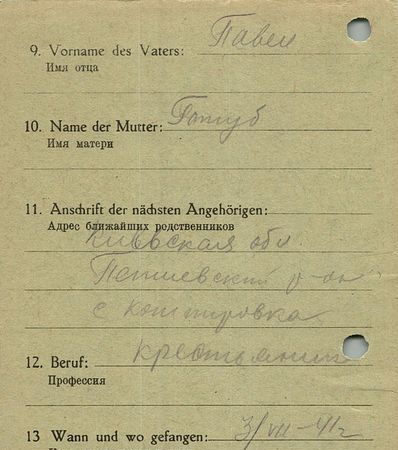 9. Vorname des Vaters: Павел
Имя отца
10. Name der Mutter:
Имя матери
11. Anschrift der nächsten Angehörigen:
Адрес ближайших родственников
Киевская обл.
р-он
с
12. Beruf: крестьянин
Профессия
13 Wann und wo gefangen: 3/VII-41г